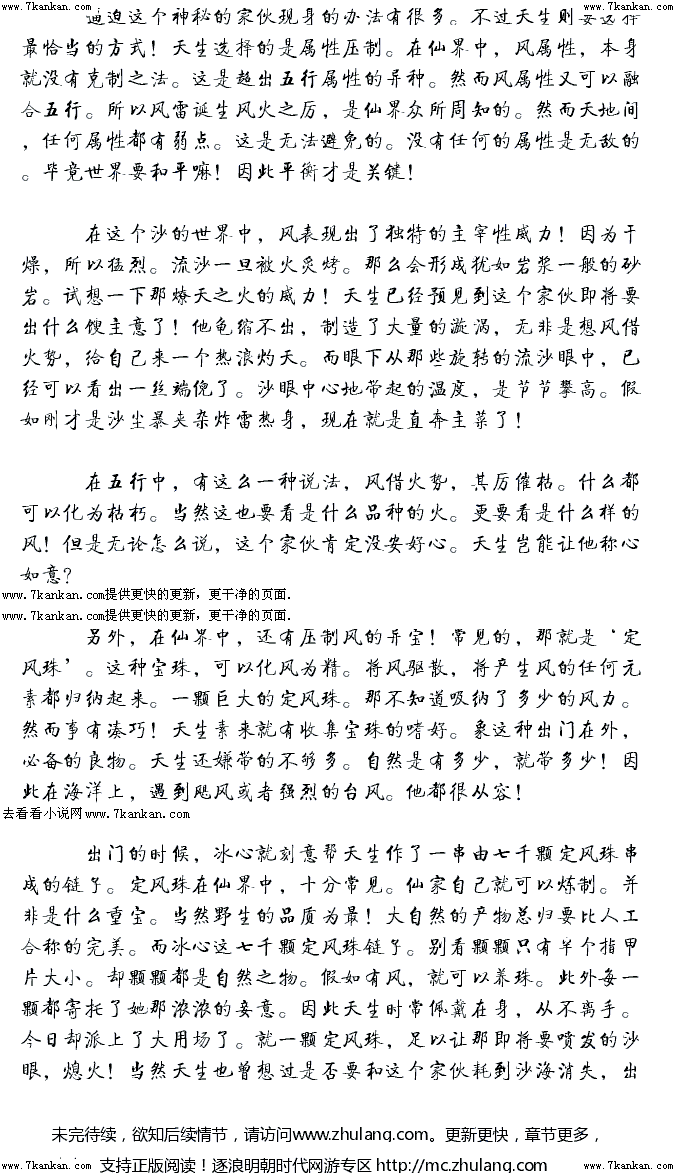 www.7kankan.com www.7kankan.com www.7kankan.com www.7kankan.com
逼迫这个神秘的家伙现身的办法有很多。不过天生则要选择
最恰当的方式！天生选择的是属性压制。在仙界中，风属性，本身
就没有克制之法。这是超出五行属性的异种。然而风属性又可以融
合五行。所以风雷诞生风火之厉，是仙界众所周知的。然而天地间
，任何属性都有弱点。这是无法避免的。没有任何的属性是无敌的
。毕竟世界要和平嘛！因此平衡才是关键！
在这个沙的世界中，风表现出了独特的主宰性威力！因为干
燥，所以猛烈。流沙一旦被火炙烤。那么会形成犹如岩浆一般的砂
岩。试想一下那燎天之火的威力！天生已经预见到这个家伙即将要
出什么馊主意了！他龟缩不出，制造了大量的漩涡，无非是想风借
火势，给自己来一个热浪灼天。而眼下从那些旋转的流沙眼中，已
经可以看出一丝端倪了。沙眼中心地带起的温度，是节节攀高。假
如刚才是沙尘暴夹杂炸雷热身，现在就是直奔主菜了！
在五行中，有这么一种说法，风借火势，其厉催枯。什么都
可以化为枯朽。当然这也要看是什么品种的火。更要看是什么样的
风！但是无论怎么说，这个家伙肯定没安好心。天生岂能让他称心
如意？
www.7kankan.com提供更快的更新，更干净的页面.
www.7kankan.com提供更快的更新，更干净的页面.
另外，在仙界中，还有压制风的异宝！常见的，那就是‘定
风珠’。这种宝珠，可以化风为精。将风驱散，将产生风的任何元
素都归纳起来。一颗巨大的定风珠。那不知道吸纳了多少的风力。
然而事有凑巧！天生素来就有收集宝珠的嗜好。象这种出门在外，
必备的良物。天生还嫌带的不够多。自然是有多少，就带多少！因
此在海洋上，遇到飓风或者强烈的台风。他都很从容！
去看看小说网www.7kankan.com
出门的时候，冰心就刻意帮天生作了一串由七千颗定风珠串
成的链子。定风珠在仙界中，十分常见。仙家自己就可以炼制。并
非是什么重宝。当然野生的品质为最！大自然的产物总归要比人工
合称的完美。而冰心这七千颗定风珠链子。别看颗颗只有半个指甲
片大小。却颗颗都是自然之物。假如有风，就可以养珠。此外每一
颗都寄托了她那浓浓的妾意。因此天生时常佩戴在身，从不离手。
今日却派上了大用场了。就一颗定风珠，足以让那即将要喷发的沙
眼，熄火！当然天生也曾想过是否要和这个家伙耗到沙海消失，出
未完待续，欲知后续情节，请访问www.zhulang.com。更新更快，章节更多，
支持正版阅读！逐浪明朝时代网游专区 http://mc.zhulang.com
www.7kankan.com www.7kankan.com